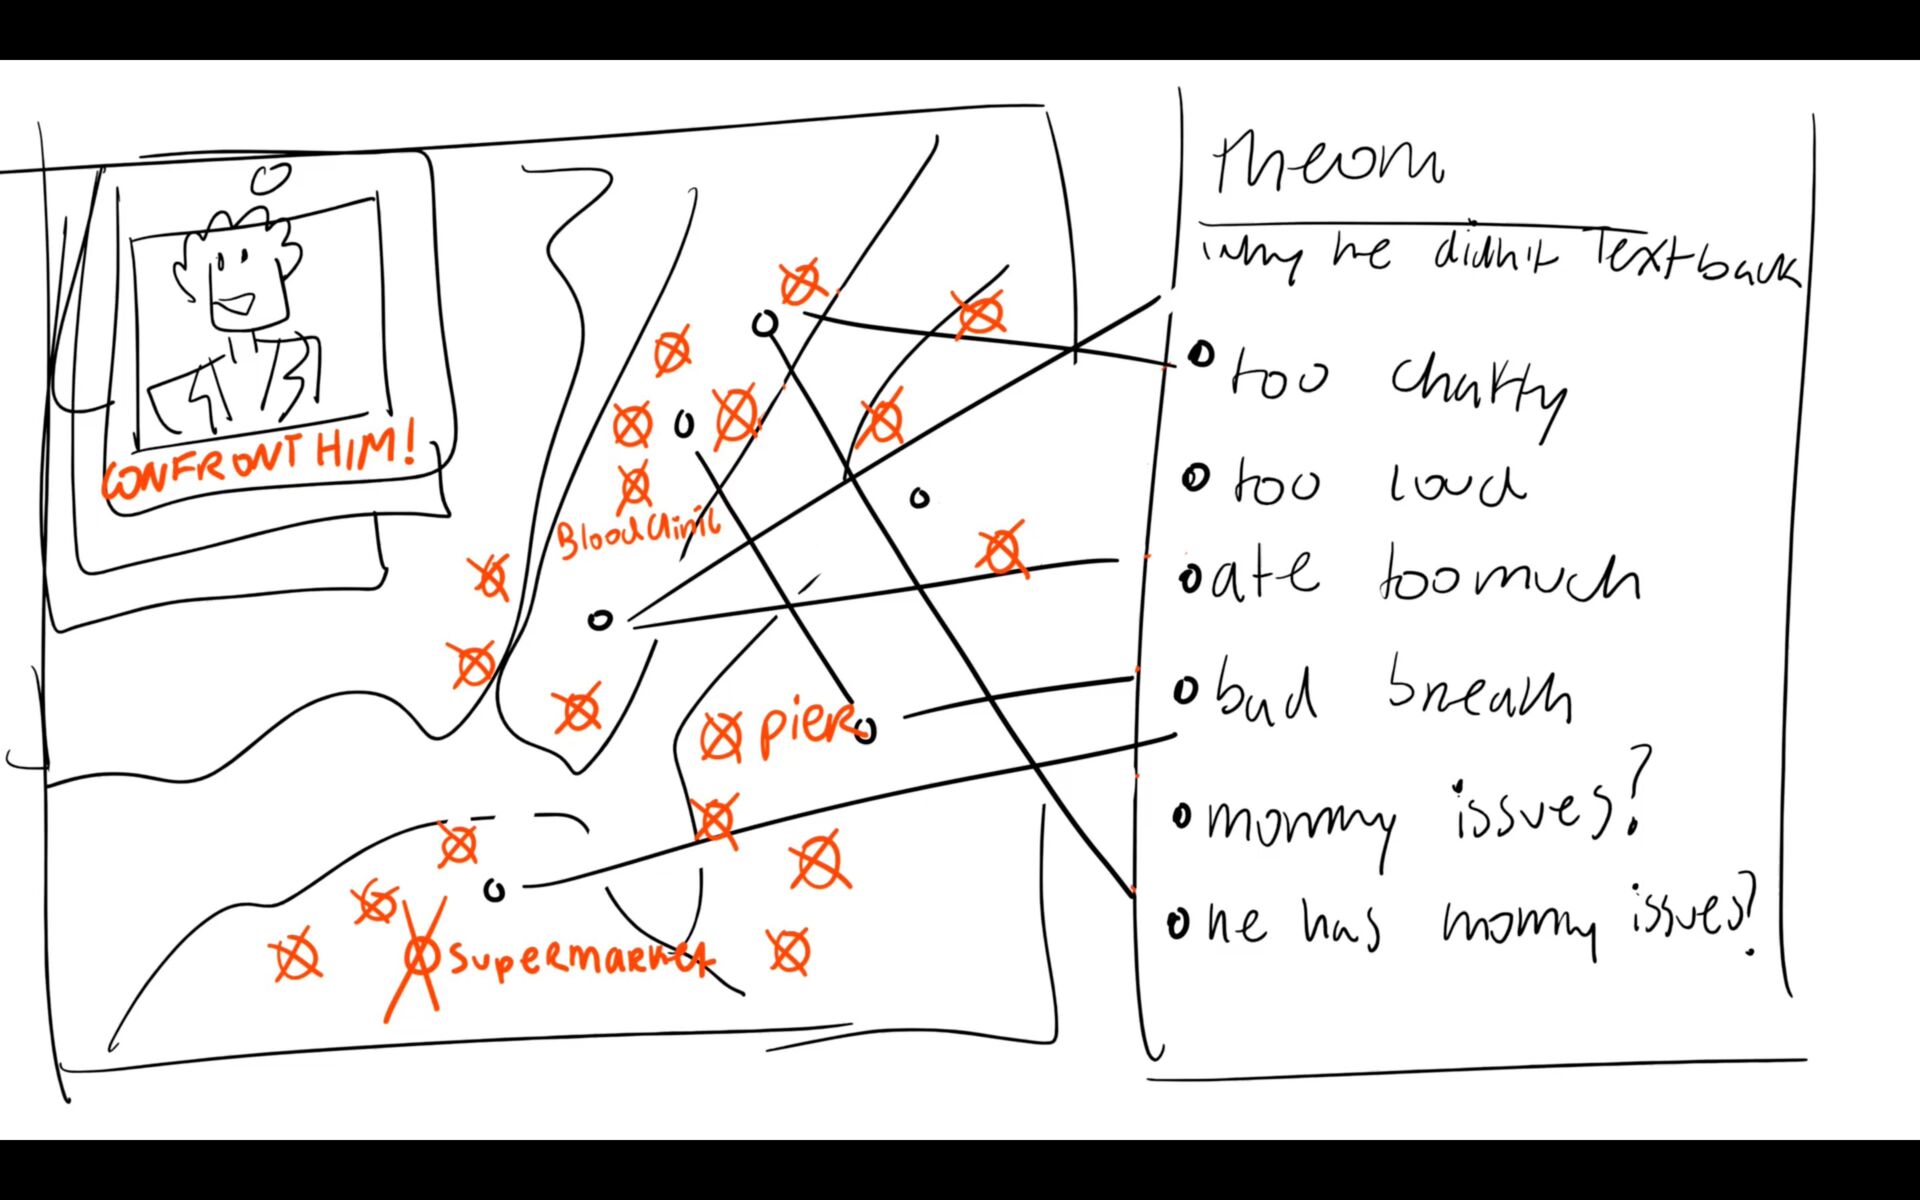 CONFRONT HIM!
Blood Clinic
pier
supermarket
theory
why he didn't text back
too chatty
too loud
ate too much
bad breath
mommy issues?
he has mommy issues?